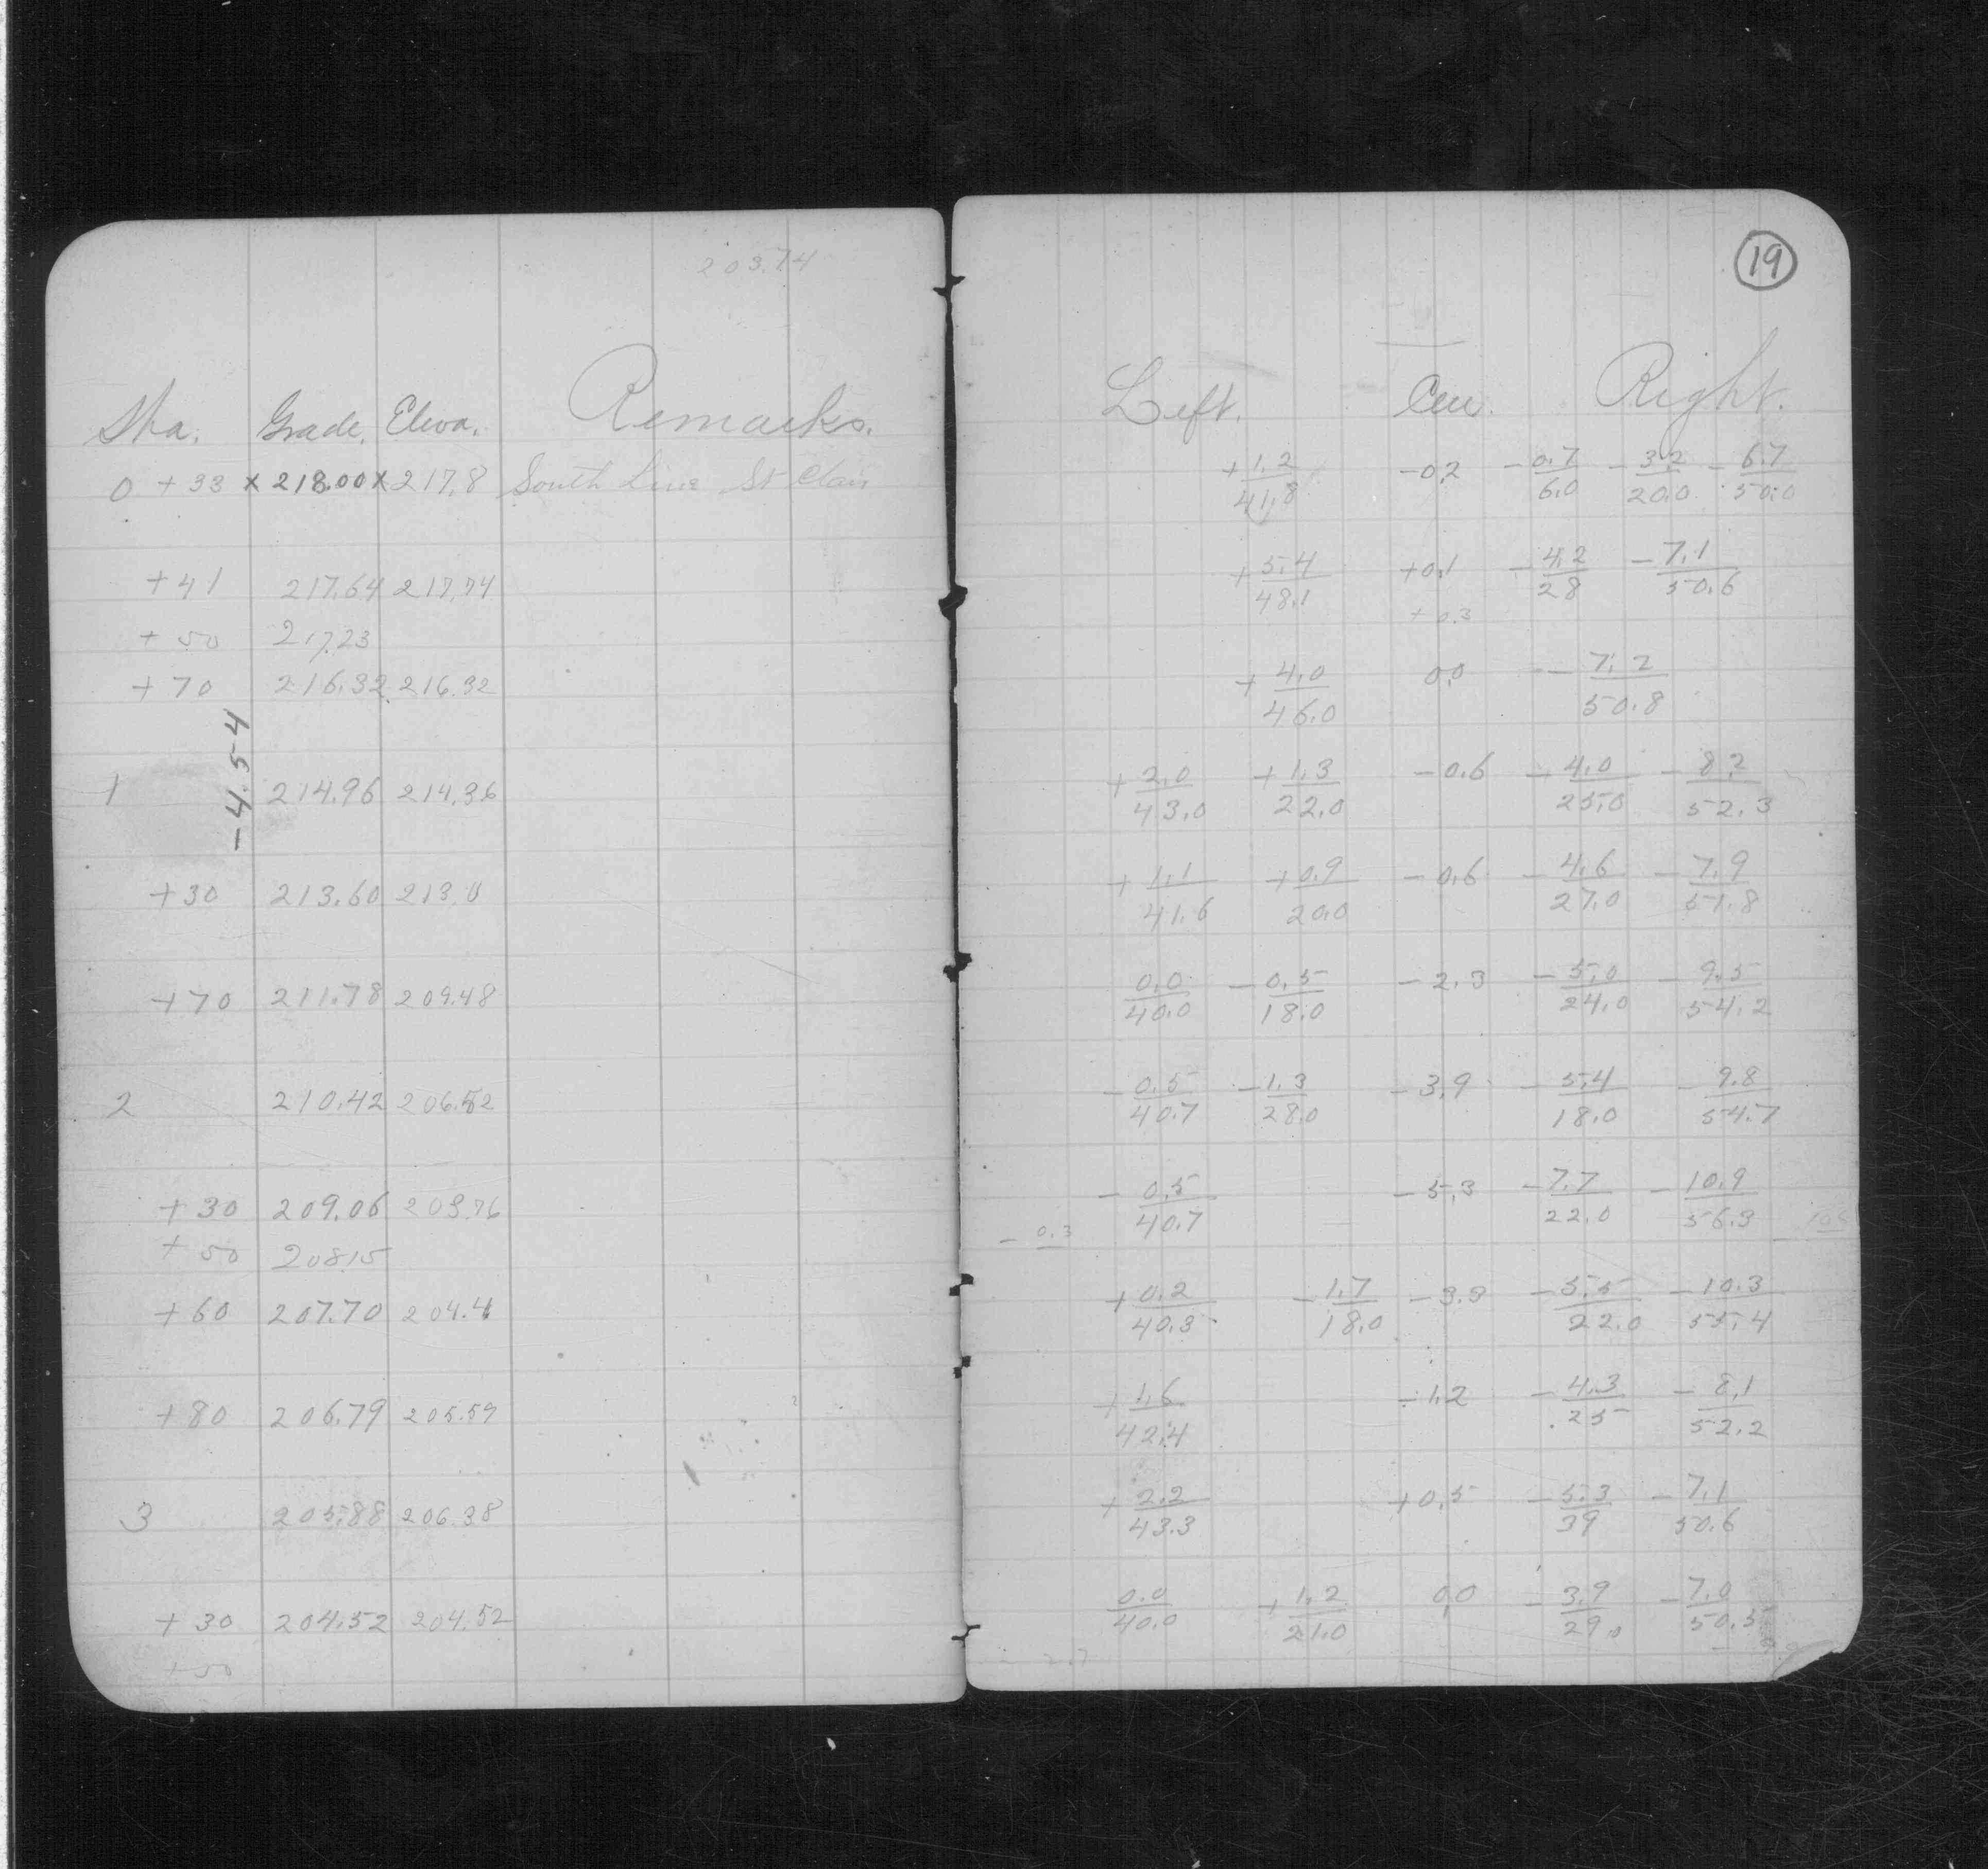 203.74
Sta. Grade. Eleva. Remarks.
0 + 33 x 218.00 x 217.8 South Line St Clair
+ 41 217.64 217.74
+ 50 217.23
+ 70 216.32 216.32
- 4.54
1 214.96 214.36
+ 30 213.60 213.0
+ 70 211.78 209.48
2 210.42 206.52
+ 30 209.06 203.76
+ 50 208.15
+ 60 207.70 204.4
+ 80 206.79 205.59
3 205.88 206.38
+ 30 204.52 204.52
+ 50
19
Left. Cen. Right.
+ 1.2/41.8 - 0.2 - 0.7/6.0 - 3.2/20.0 - 6.7/50.0
+ 5.4/48.1 + 0.1 - 4.2/28 - 7.1/50.6
+ 0.3
+ 4.0/46.0 0.0 - 7.2/50.8
+ 2.0/43.0 + 1.3/22.0 - 0.6 - 4.0/25.0 - 8.2/52.3
+ 1.1/41.6 + 0.9/20.0 - 0.6 - 4.6/27.0 - 7.9/51.8
0.0/40.0 - 0.5/18.0 - 2.3 - 5.0/24.0 - 9.5/54.2
- 0.5/40.7 - 1.3/28.0 - 3.9 - 5.4/18.0 - 9.8/54.7
- 0.5/40.7 - 5.3 - 7.7/22.0 - 10.9/56.3
- 0.3
+ 0.2/40.3 - 1.7/18.0 - 3.3 - 5.5/22.0 - 10.3/55.4
+ 1.6/42.4 - 1.2 - 4.3/25 - 8.1/52.2
+ 2.2/43.3 + 0.5 - 5.3/39 - 7.1/50.6
0.0/40.0 + 1.2/21.0 0.0 - 3.9/29.0 - 7.0/50.5